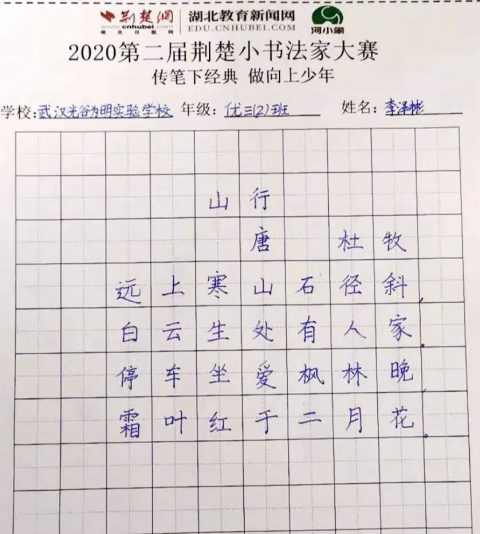 荆楚網 湖北教育新闻网 河小象
www.cnhubei.com EDU.CNHUBEI.COM
2020第二届荆楚小书法家大赛
传笔下经典 做向上少年
学校:武汉光谷为明实验学校 年级:优三(2)班 姓名:李泽彬
山行
唐 杜牧
远上寒山石径斜,
白云生处有人家。
停车坐爱枫林晚,
霜叶红于二月花。